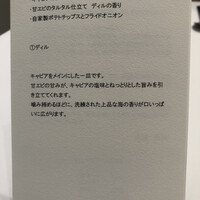 ・甘エビのタルタル仕立て　ディルの香り
・自家製ポテトチップスとフライドオニオン
①ディル
キャビアをメインにした一皿です。
甘エビの甘みが、キャビアの塩味とねっとりとした旨みを引
き立ててくれます。
噛み締めるほどに、洗練された上品な海の香りが口いっぱ
いに広がります。